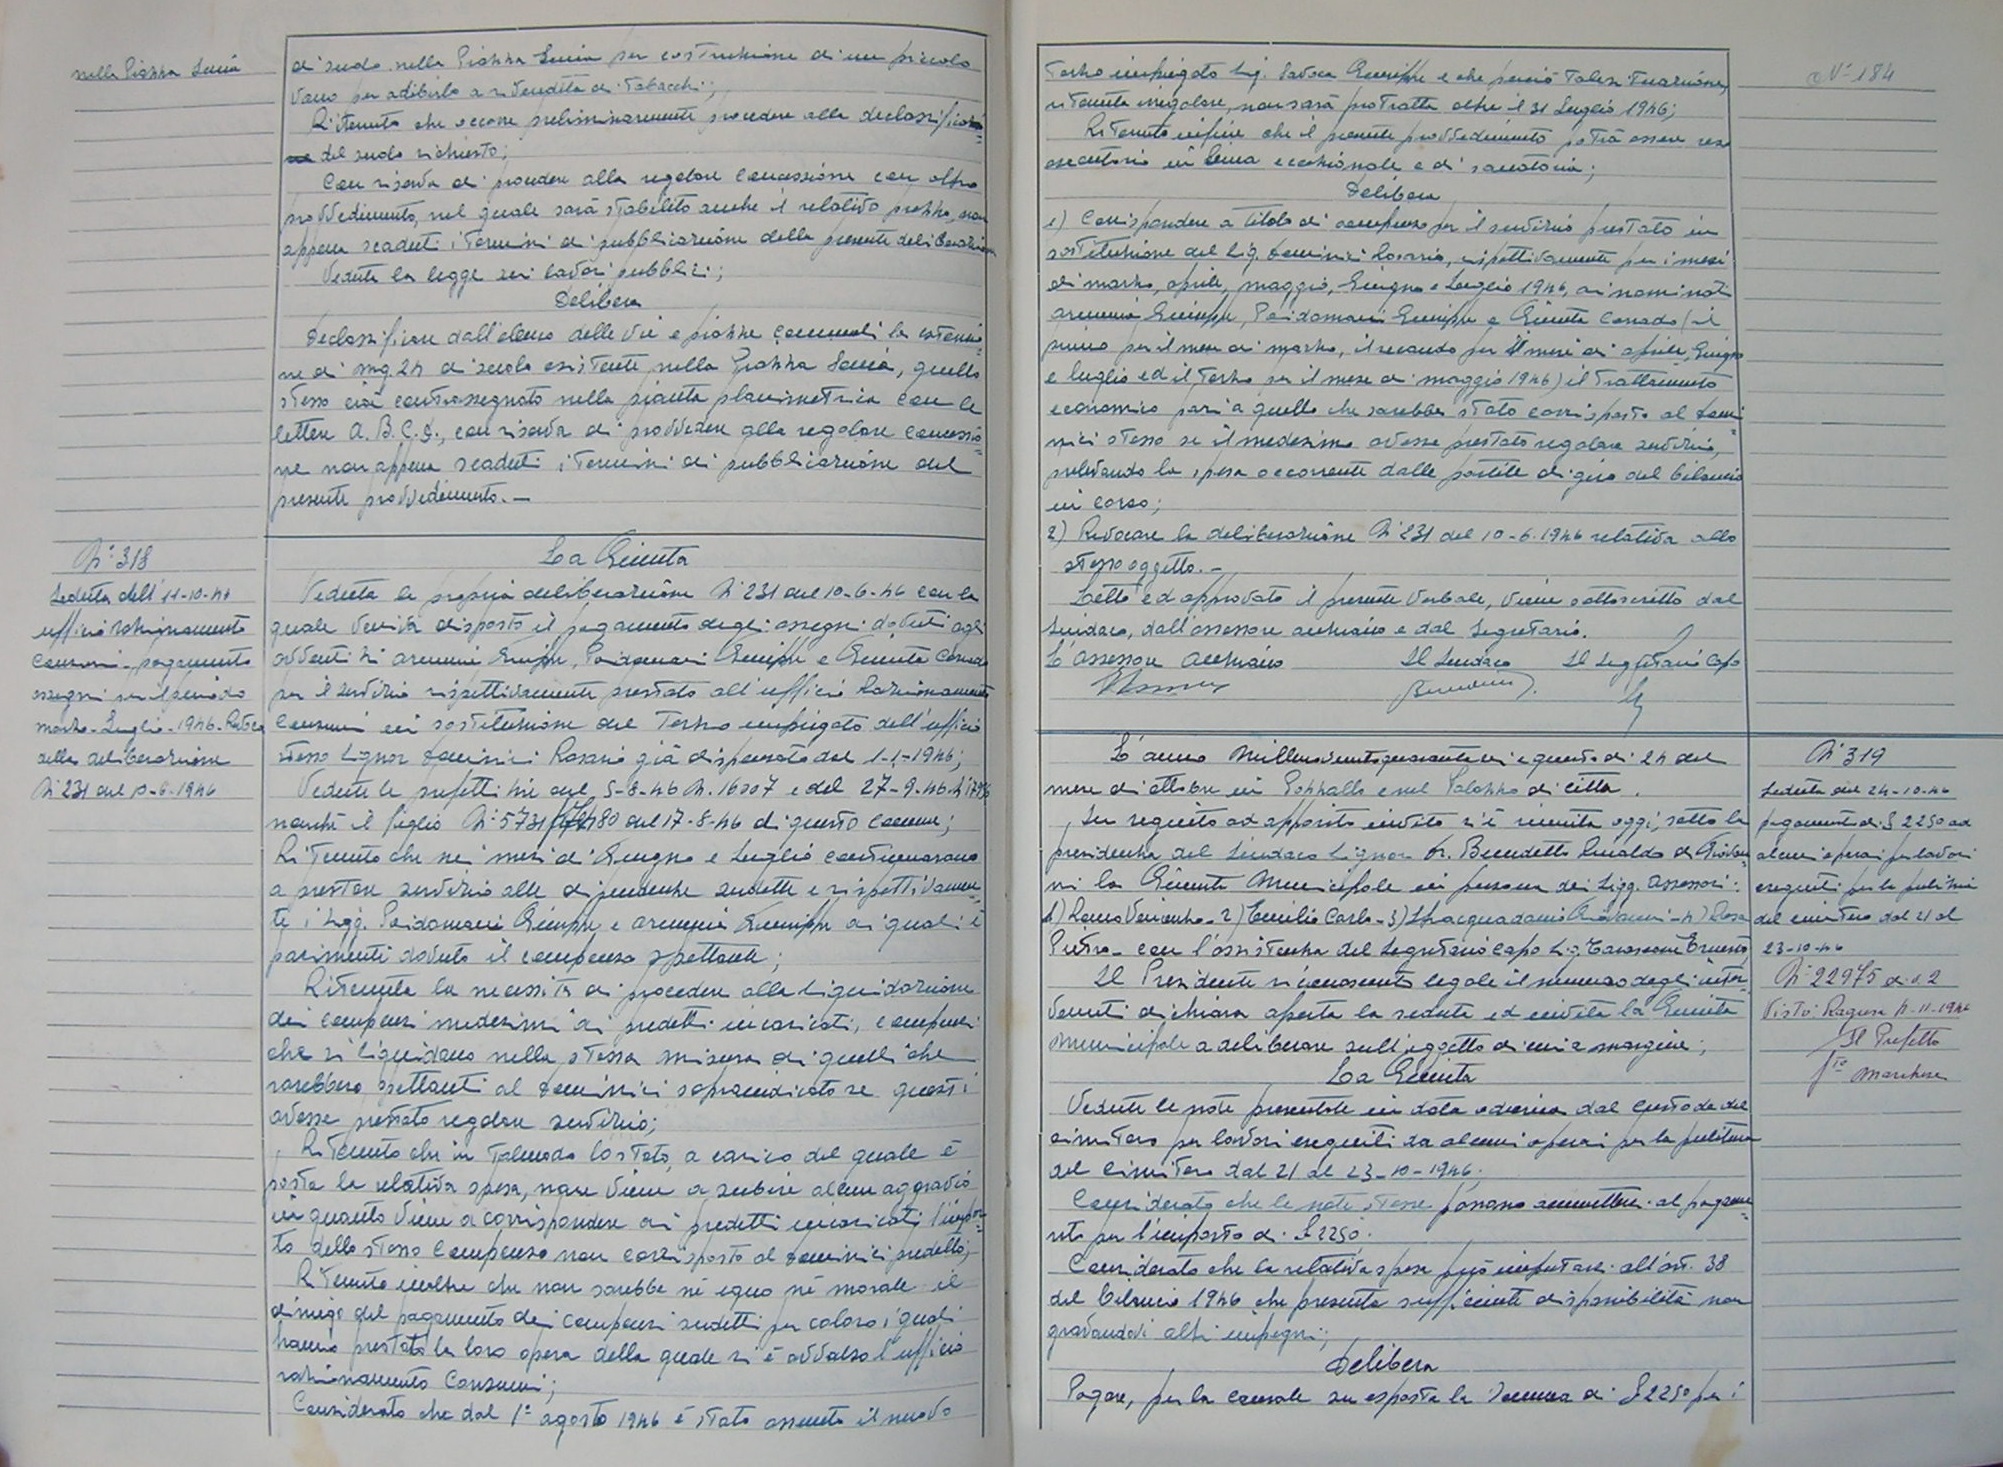 nella Piazza Scucià
di suolo nella Piazza per costruzione di un piccolo
vano per adibirlo a rivendita di Tabacchi;
Ritenuto che occorre preliminarmente procedere alla declassificazio=
ne del suolo richiesto;
Con riserva di procedere alla regolare concessione con altro
provvedimento, nel quale sarà stabilito anche il relativo prezzo, non
appena scaduti i termini di pubblicazione della presente deliberazione
Veduta la legge sui lavori pubblici;
Delibera
Declassificare dall'elenco delle vie e piazze comunali la estensio=
ne di mq. 24 di suolo esistente nella Piazza quello
stesso cioè contrassegnato nella pianta planimetrica con le
lettere A. B. C. D., con riserva di provvedere alla regolare concessio=
ne non appena scaduti i termini di pubblicazione del
presente provvedimento. —
N° 318
Seduta dell'11-10-46
ufficio razionamento
consumi - pagamento
assegni per il periodo
marzo - Luglio - 1946 - Revoca
della deliberazione
N° 231 del 10-6-1946
La Giunta
Veduta la propria deliberazione N° 231 del 10-6-46 con la
quale veniva disposto il pagamento degli assegni dovuti agli
avventizi Giuseppe, Paidomani Giuseppe e Giunta Corrado
per il servizio rispettivamente prestato all'ufficio Razionamento
Consumi in sostituzione del terzo impiegato dell'ufficio
stesso Signor Rosario già dispensato dal 1-1-1946;
Vedute le prefettizie del 5-8-46 N. 16007 e del 27-9-46 N.
nonchè il foglio N° 5731 del 17-8-46 di questo Comune;
Ritenuto che nei mesi di Giugno e Luglio continuarono
a prestare servizio alle dipendenze sudette e rispettivamen=
te i Sigg. Paidomani Giuseppe e Giuseppe ai quali è
parimenti dovuto il compenso spettante;
Ritenuta la necessità di procedere alla liquidazione
dei compensi medesimi ai predetti incaricati, compensi
che si liquidano nella stessa misura di quelli che
sarebbero spettanti al sopraindicato se questi
avesse prestato regolare servizio;
Ritenuto che in tal modo lo Stato, a carico del quale è
posta la relativa spesa, non viene a subire alcun aggravio
in quanto viene a corrispondere ai predetti incaricati l'impor=
to dello stesso compenso non corrisposto al predetto;
Ritenuto inoltre che non sarebbe nè equo nè morale il
diniego del pagamento dei compensi sudetti per coloro i quali
hanno prestato la loro opera della quale si è avvalso l'ufficio
razionamento Consumi;
Considerato che dal 1° agosto 1946 è stato assunto il nuovo
N° 184
terzo impiegato Sig. Savoca Giuseppe e che perciò tale situazione,
ritenuta irregolare, non sarà protratta oltre il 31 Luglio 1946;
Ritenuto infine che il presente provvedimento potrà essere reso
esecutorio in linea eccezionale e di sanatoria;
Delibera
1) Corrispondere a titolo di compenso per il servizio prestato in
sostituzione del Sig. Rosario, rispettivamente per i mesi
di marzo, aprile, maggio, Giugno e Luglio 1946, ai nominati
Giuseppe, Paidomani Giuseppe e Giunta Corrado (il
primo per il mese di marzo, il secondo per i mesi di aprile, Giugno
e luglio ed il terzo per il mese di maggio 1946) il trattamento
economico pari a quello che sarebbe stato corrisposto al
stesso se il medesimo avesse prestato regolare servizio,
prelevando la spesa occorrente dalle partite di giro del bilancio
in corso;
2) Revocare la deliberazione N° 231 del 10-6-1946 relativa allo
stesso oggetto. —
Letto ed approvato il presente verbale, viene sottoscritto dal
Sindaco, dall'assessore anziano e dal Segretario.
L'assessore anziano Il Sindaco Il Segretario Capo
L'anno millenovecentoquarantasei e questo dì 24 del
mese di ottobre in Pozzallo e nel Palazzo di città.
In seguito ad apposito invito si è riunita oggi, sotto la
presidenza del Sindaco Signor Dr. Benedetto di Giovan=
ni la Giunta Municipale in persona dei Sigg. assessori:
1) Vincenzo - 2) Emilio Carlo - 3) Spacquadaino Giovanni - 4) Rosa
Pietro - con l'assistenza del Segretario Capo Sig. Ernesto,
Il Presidente riconosciuto legale il numero degli inter=
venuti dichiara aperta la seduta ed invita la Giunta
Municipale a deliberare sull'oggetto di cui a margine;
La Giunta
Vedute le note presentate in data odierna dal custode del
cimitero per lavori eseguiti da alcuni operai per la pulitura
del cimitero dal 21 al 23-10-1946.
Considerato che le note stesse possono ammettersi al pagamen=
to per l'importo di £ 2250.
Considerato che la relativa spesa può imputarsi all'art. 38
del bilancio 1946 che presenta sufficiente disponibilità non
gravandovi altri impegni;
Delibera
Pagare, per la causale su esposta la somma di £ 2250 per i
N° 319
Seduta del 24-10-46
pagamento di £ 2250 ad
alcuni operai per lavori
eseguiti per la pulizia
del cimitero dal 21 al
23-10-46
N° 22975 div. 2
Visto: Ragusa 11-1946
Il Prefetto
f.to Marchese